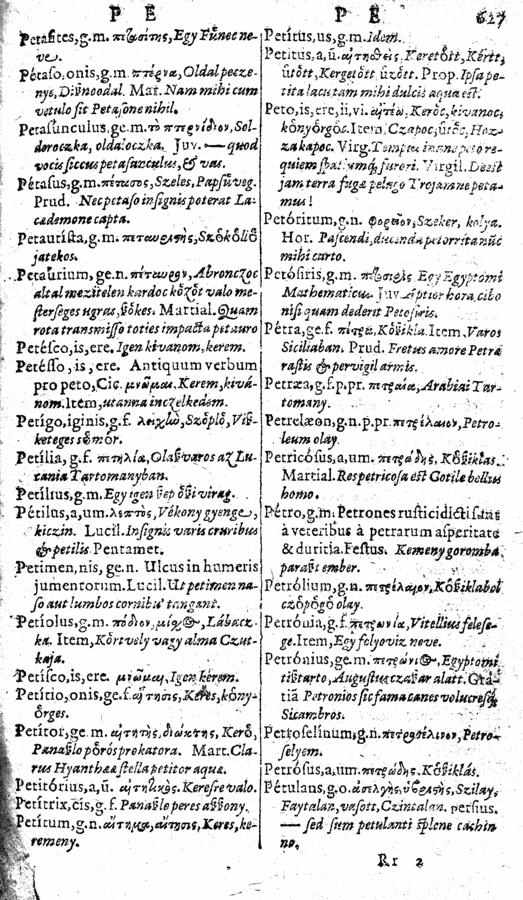 P E P E 627
Petasites, g.m. πετασίτης, Egy Fűnec ne-
ve.
Petaso, onis, g.m. πέρνα, Oldal pecze-
nye, Disnoodal. Mat. Nam mihi cum
vetulo sit Petasone nihil.
Petasunculus, ge.m. τὸ πτερνίδιον, Sol-
doroczka, oldaloczka. Juv. — quod
vocis siccus petasunculus, & vas.
Pétasus, g.m. πέτασος, Szeles, Papsűveg.
Prud. Nec petaso insignis poterat La-
cædemone capta.
Petaurísta, g.m. πεταυριστὴς,
jatekos.
Petaurium, ge.n. πέταυρον, Abronczoc
altal mezitelen kardoc kőzőt valo me-
sterséges ugras, Martial. Quam
rota transmisso toties impacta petauro
Petésco, is, ere. Igen kivanom, kerem.
Petésso, is, ere. Antiquum verbum
pro peto, Cic. μνῶμαι. Kerem, kivá-
nom. Item, utanna inczelkedem.
Petígo, iginis, g.f. λειχὼ, Szőplő, Vis-
keteges sőmőr.
Petília, g.f. πετηλία, Olasz varos az Lu-
cania Tartomanyban.
Petílius, g.m. Egy igen szep őszi virag.
Pétilus, a, um. λεπτὸς, Vékony gyenge,
kiczin. Lucil. Insignis varis cruribus
& petilis Pentamet.
Petimen, nis, ge.n. Ulcus in humeris
jumentorum. Lucil. Ut petimen na-
so aut lumbos cornibu' tangant.
Petíolus, g.m. Lábacz-
ka. Item, Kőrtvely vagy alma Czut-
kaja.
Petísco, is, ere. μνῶμαι, Igen kérem.
Petítio, onis, ge.f. αἴτησις, Keres, kőny-
őrges.
Petítor, ge.m. αἰτητὴς, διώκτης, Kerő,
Panaszlo pőrős prokatora. Mart. Cla-
rus Hyantheæ stella petitor aquæ.
Petitórius, a, ū. αἰτητικὸς. Keresre valo.
Petítrix, cis, g.f. Panaszlo peres asszony.
Petítum, g.n. αἴτημα, αἴτησις, Keres, ke-
remeny.
Petítus, us, g.m. Idem.
Petítus, a, ū. αἰτηθεὶς, Keretőtt, Kértt,
űtőtt, Kergetőtt űzőtt. Prop. Ipsa pe-
tita lacu tam mihi dulcis aqua est.
Peto, is, ere, ii, vi. αἰτέω, Kerőc, kivanoc,
kőnyőrgőc. Item, Czapoc, űtőc, Hoz-
zakapoc. Virg.
quiem spatiumq́; furori. Virgil. Deest
jam terra fugæ pelago Trojam ne peta-
mus!
Petóritum, g.n. φορεῖον, Szeker, kolya.
Hor. Pascendi, ducenda petorrita nūc
mihi carto.
Petósiris, g.m. Egy Egyptomi
Mathematicus. Juv. Aptior hora cibo
nisi quam dederit Petosiris.
Pétra, ge.f. πέτρα, Kősikla. Item, Varos
Siciliaban. Prud. Fretus amore Petræ
rastis & pervigil armis.
Petræa, g.f. p.pr. πετραία, Arabiai Tar-
tomany.
Petrelæon, g.n. p.pr. πετρέλαιον, Petro-
leum olay.
Petricósus, a, um. πετρώδης, Kősziklas.
Martial. Res petricosa est Gotile bellus
homo.
Pétro, g.m. Petrones rusticidicti sunt
à veteribus à petrarum asperitate
& duritia. Festus. Kemeny goromba
paraszt ember.
Petrólium, g.n. πετρέλαιον, Kősziklabol
czőpőgő olay.
Petrónia, g.f. πετρωνία, Vitellius felese-
ge. Item, Egy folyoviz neve.
Petrónius, ge.m. Egyptomi
tisztarto, Augustus czaszar alatt. Gra-
tia Petronios sic fama canes volucresq́;
Sicambros.
Petroselínum, g.n. πετροσέλινον, Petro-
selyem.
Petrósus, a, um. πετρώδης. Kősziklás.
Pétulans, g.o. ἀσελγὴς, ὑβριστὴς, Szilay,
Faytalan, vasott, Czintalan. Persius.
— sed sum petulanti splene cachin
no.
Rr 2